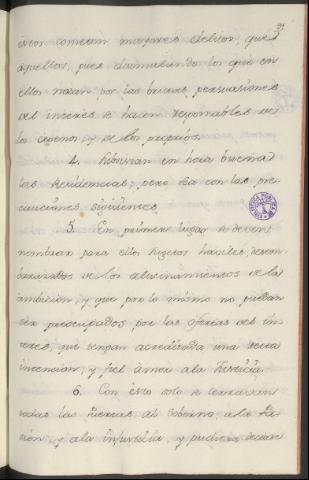 estos cometan mayores delitos, que
aquellos, pues disimulando los que en
ellos notan por las buenas persuasiones
del interes se hacen responsables de
lo ageno, y de los propios.
4. en hora buena
las Residencias; pero sea con las pre-
cauciones siguientes.
5. En primer lugar se deven
nombrar para ellos sugetos habiles, desem-
barazados de los alucinamientos de la
ambicion, y que por lo mismo no puedan
ser preocupados por las ofertas del in-
teres, que tengan acreditada una recta
intencion, y fiel amor a la Justicia.
6. Con esto solo se cerraran
todas las Puertas al Soborno, a la Pa-
sion, y a la injusticia, y pudiera